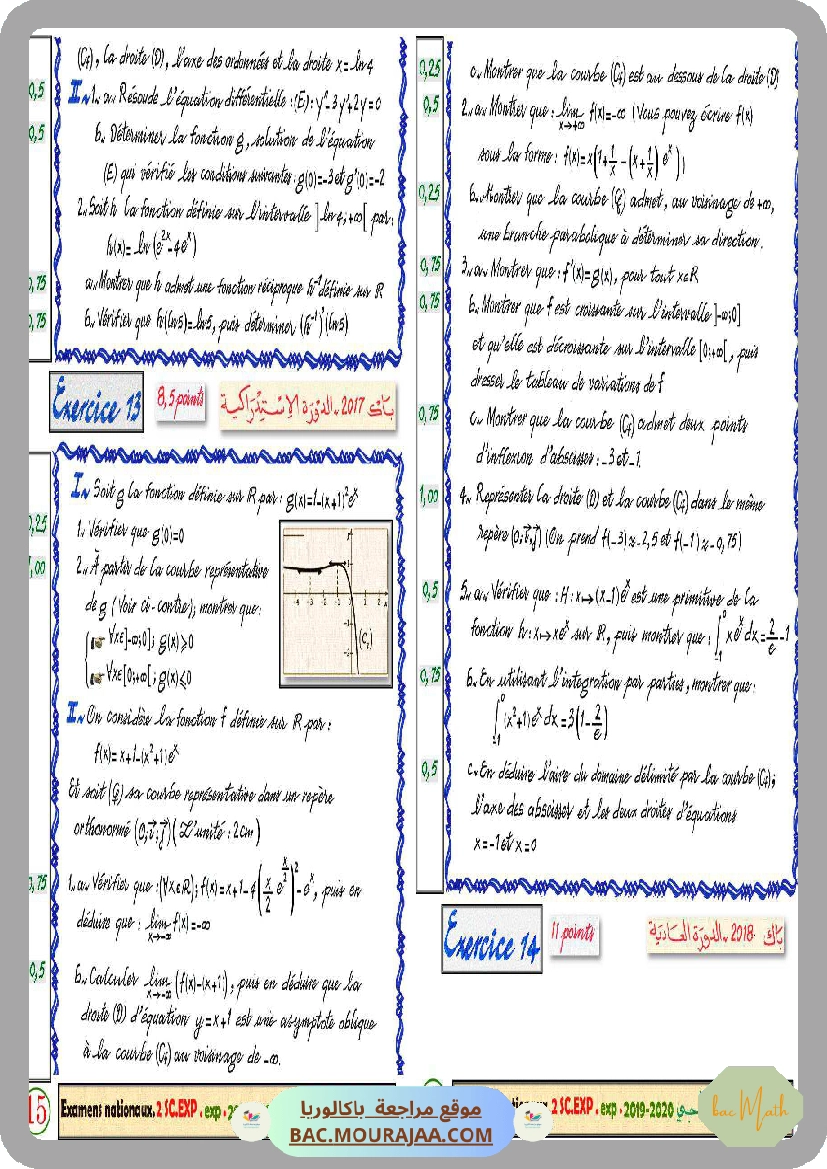 (Cf), la droite (D), l'axe des ordonnées et la droite x = ln 4
0,5
II~ 1.. a.. Résoude l'équation différentielle : (E) : y''-3y'+2y=0
0,5
b.. Déterminer la fonction g, solution de l'équation
(E) qui vérifié les conditions suivantes : g(0)=-3 et g'(0)=-2
2.. Soit h la fonction définie sur l'intervalle ] ln 4; +∞ [ par :
h(x) = ln (e^{2x}-4e^x)
0,75
a.. Montrer que h admet une fonction réciproque h^{-1} définie sur R
0,75
b.. Vérifier que h(ln5)=ln5, puis déterminer (h^{-1})'(ln5)
Exercice 13
8,5 points
باك 2017 ~ الدورة الاستدراكية
I~ Soit g la fonction définie sur R par : g(x)=1-(x+1)²e^x
0,25
1.. Vérifier que g(0)=0
1,00
2.. À partir de la courbe représentative
de g (Voir ci-contre); montrer que :
∀x∈]-∞;0]; g(x)≥0
∀x∈[0;+∞[; g(x)≤0
-4 -3 -2 -1 1 2
(Cg)
II~ On considère la fonction f définie sur R par :
f(x)= x+1-(x²+1)e^x
Et soit (Cf) sa courbe représentative dans un repère
orthonormé (O;i;j) (L'unité : 2cm)
0,75
1.. a.. Vérifier que : (∀x∈R); f(x)= x+1-4(x/2 e^{x/2})²-e^x, puis en
déduire que : lim x→-∞ f(x)=-∞
0,5
b.. Calculer lim x→-∞ (f(x)-(x+1)), puis en déduire que la
droite (D) d'équation y=x+1 est une asymptote oblique
à la courbe (Cf) au voisinage de -∞.
0,25
c.. Montrer que la courbe (Cf) est au dessous de la droite (D)
0,5
2.. a.. Montrer que : lim x→+∞ f(x)=-∞ (Vous pouvez écrire f(x)
sous la forme : f(x)=x(1+1/x-(x+1/x)e^x))
0,25
b.. Montrer que la courbe (Cf) admet, au voisinage de +∞,
une branche parabolique à déterminer sa direction.
0,75
3.. a.. Montrer que : f'(x)=g(x), pour tout x∈R
0,75
b.. Montrer que f est croissante sur l'intervalle ]-∞;0]
et qu'elle est décroissante sur l'intervalle [0;+∞[, puis
dresser le tableau de variations de f
0,75
c.. Montrer que la courbe (Cf) admet deux points
d'inflexion d'abscisses : -3 et -1.
1,00
4.. Représenter la droite (D) et la courbe (Cf) dans le même
repère (O;i;j) (On prend f(-3)≈-2,5 et f(-1)≈-0,75)
0,5
5.. a.. Vérifier que : H : x↦(x-1)e^x est une primitive de la
fonction h : x↦xe^x sur R, puis montrer que : ∫_{-1}^{0} xe^x dx = 2/e -1
0,75
b.. En utilisant l'integration par parties, montrer que :
∫_{-1}^{0} (x²+1)e^x dx = 3(1-2/e)
0,5
c.. En déduire l'aire du domaine délimité par la courbe (Cf);
l'axe des abscisses et les deux droites d'équations
x=-1 et x=0
Exercice 14
11 points
باك 2018 ~ الدورة العادية
15
Examens nationaux. 2 SC.EXP . exp
2 SC.EXP . exp . 2019-2020
موقع مراجعة باكالوريا
BAC.MOURAJAA.COM
bac Math